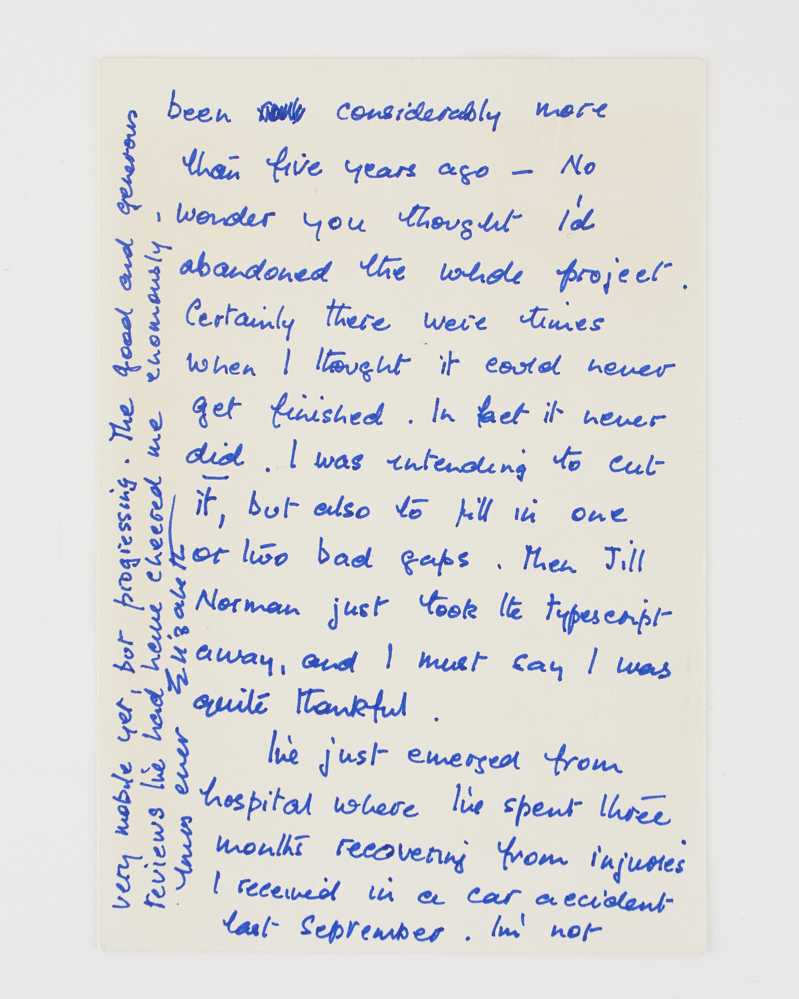 been considerably more
than five years ago — No
wonder you thought I'd
abandoned the whole project.
Certainly there were times
when I thought it could never
get finished. In fact it never
did. I was intending to cut
it, but also to fill in one
or two bad gaps. Then Jill
Norman just took the typescript
away, and I must say I was
quite thankful.
I've just emerged from
hospital where I've spent three
months recovering from injuries
I received in a car accident
last September. I'm not
very mobile yet, but progressing. The good and generous
reviews I've had have cheered me enormously.
Yours ever Elizabeth